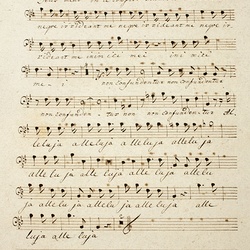 neque irrideant me neque irrideant me neque ir
rideant me inimici mei inimici
me - i non confundentur non confundentur
non confundentur non confundentur Al
leluja alleluja alleluja allelu ja
allelu ja allelu ja alleluja allelu
ja alleluja alleluja alleluja alle
luja alle luja